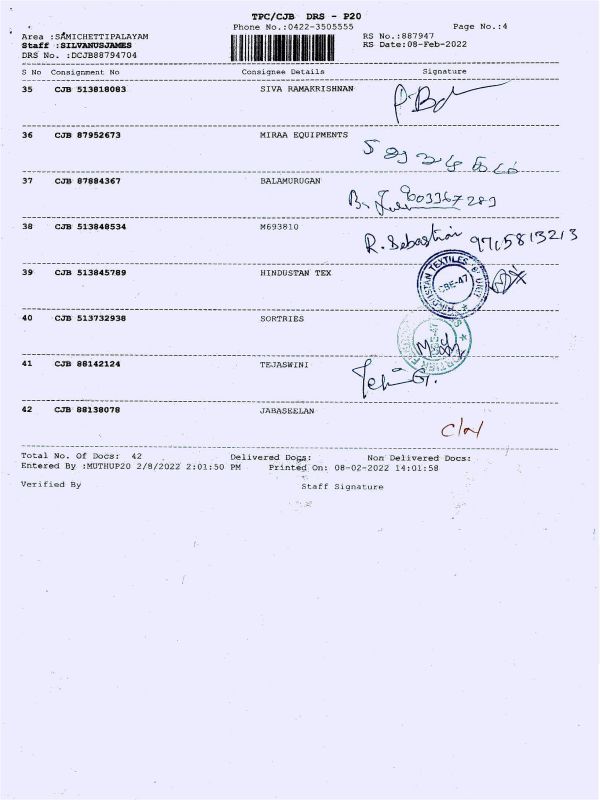 TPC/CJB DRS - P20
Phone No.:0422-3505555 Page No.:4
Area :SAMICHETTIPALAYAM RS No.:887947
Staff :SILVANUSJAMES RS Date:08-Feb-2022
DRS No. :DCJB88794704
S No Consignment No Consignee Details Signature
35 CJB 513818083 SIVA RAMAKRISHNAN
36 CJB 87952673 MIRAA EQUIPMENTS
37 CJB 87884367 BALAMURUGAN
38 CJB 513848534 M693810
R. Sebastian 9715813213
39 CJB 513845789 HINDUSTAN TEX
HINDUSTAN TEXTILES CBE-47
40 CJB 513732938 SORTRIES
41 CJB 88142124 TEJASWINI
42 CJB 88138078 JABASEELAN
Total No. Of Docs: 42 Delivered Docs: Non Delivered Docs:
Entered By :MUTHUP20 2/8/2022 2:01:50 PM Printed On: 08-02-2022 14:01:58
Verified By Staff Signature